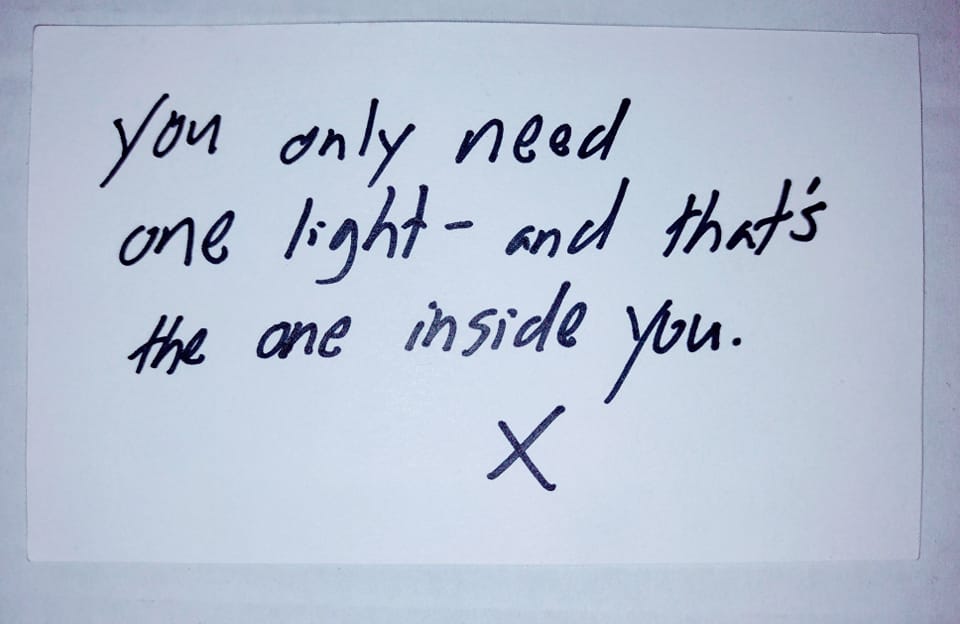 you only need
one light - and that's
the one inside you.
X